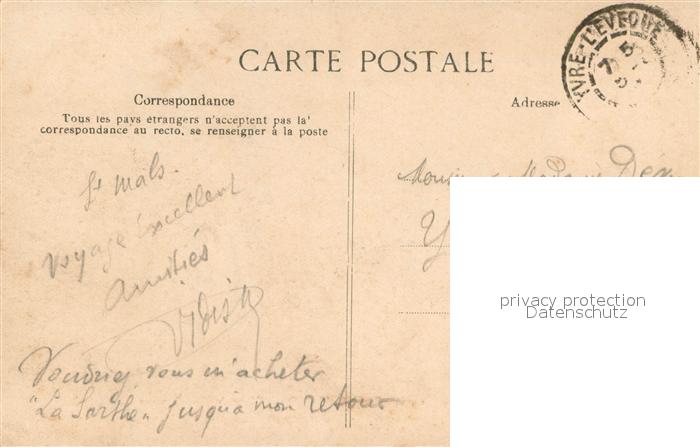 CARTE POSTALE
YVRE-L'EVEQUE
Correspondance
Tous les pays étrangers n'acceptent pas la'
correspondance au recto, se renseigner à la poste
Adresse
St Malo.
Voyage Excellent
Amitiés
Voudriez vous m'acheter
"La Sarthe" jusqu'a mon retour
Monsieur Madame
privacy protection
Datenschutz